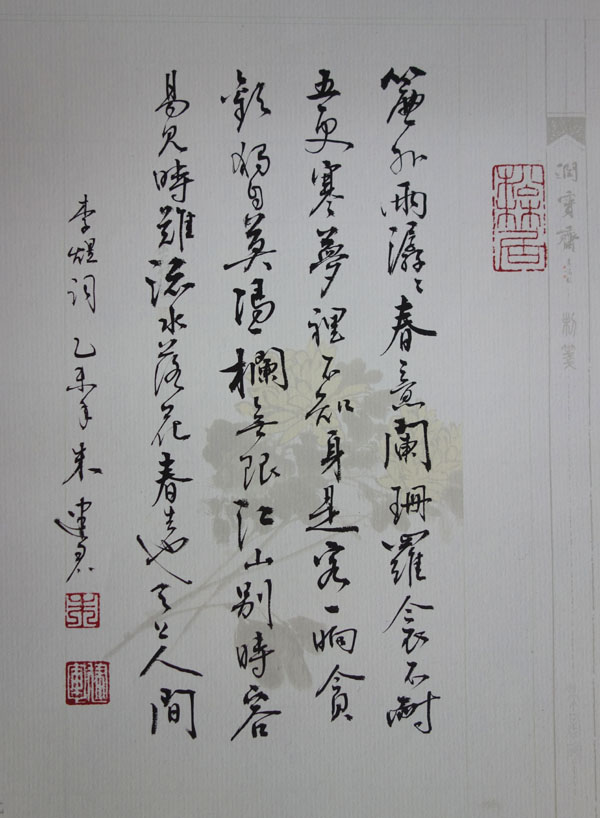 松林居
簾外雨潺〻春意闌珊羅衾不耐
五更寒夢裡不知身是客一晌貪
歡獨自莫憑欄無限江山別時容
易見時難流水落花春去也天上人間
李煜詞乙未年朱建
朱